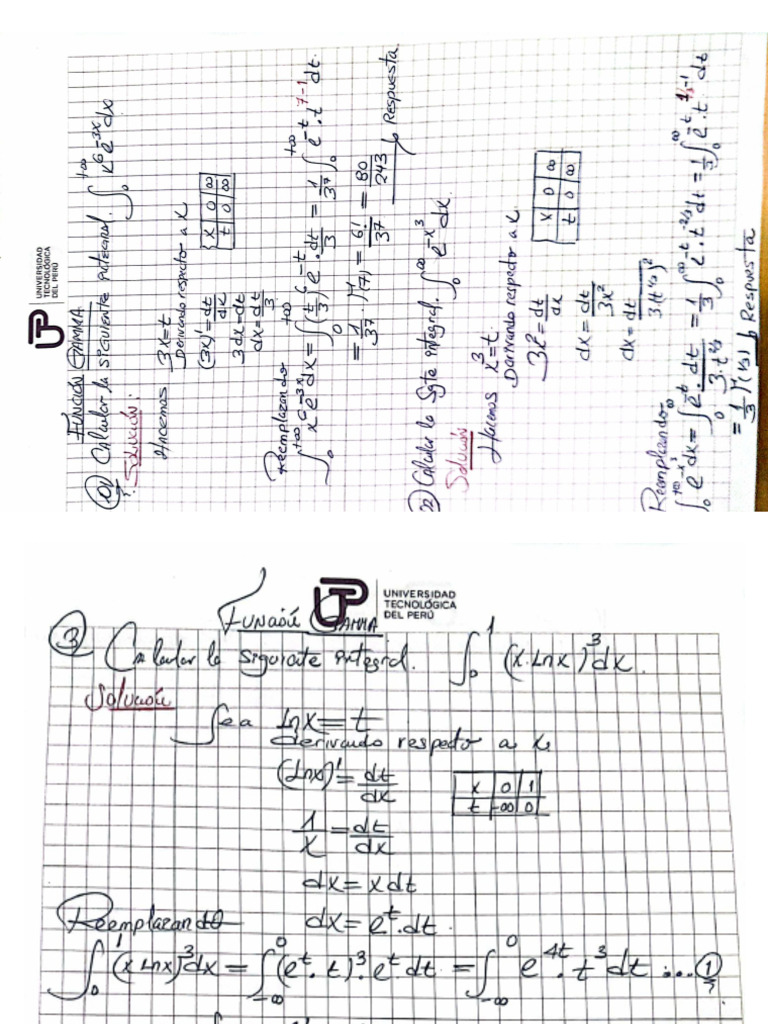 UNIVERSIDAD
TECNOLÓGICA
DEL PERÚ
FUNCIÓN GAMMA
01 Calcular la siguiente integral. ∫₀^{+∞} x⁶ e^{-3x} dx
Solución:
Hacemos 3x = t
Derivando respecto a x
(3x)' = dt/dx
x 0 ∞
t 0 ∞
3dx = dt
dx = dt/3
Reemplazando
∫₀^{+∞} x⁶ e^{-3x} dx = ∫₀^{+∞} (t/3)⁶ e^{-t} · dt/3 = 1/3⁷ ∫₀^{+∞} e^{-t} · t^{7-1} dt.
= 1/3⁷ · Γ(7) = 6!/3⁷ = 80/243 Respuesta
02 Calcular la Sgte integral. ∫₀^{∞} e^{-x³} dx.
Solución
Hacemos x³ = t.
Derivando respecto a x.
3x² = dt/dx
x 0 ∞
t 0 ∞
dx = dt/3x²
dx = dt/3(t^{1/3})²
Reemplazando
∫₀^{+∞} e^{-x³} dx = ∫₀^{∞} e^{-t} · dt/3·t^{2/3} = 1/3 ∫₀^{∞} e^{-t} · t^{-2/3} dt = 1/3 ∫₀^{∞} e^{-t} · t^{1/3-1} dt
= 1/3 Γ(1/3) Respuesta
UNIVERSIDAD
TECNOLÓGICA
DEL PERÚ
FUNCIÓN GAMMA
3 Calcular la siguiente integral. ∫₀¹ (x·Lnx)³ dx.
Solución
Sea Lnx = t
derivando respecto a x
(Lnx)' = dt/dx
x 0 1
t -∞ 0
1/x = dt/dx
dx = x dt
Reemplazando dx = eᵗ·dt.
∫₀¹ (x Lnx)³ dx = ∫_{-∞}^0 (eᵗ·t)³·eᵗ·dt = ∫_{-∞}^0 e^{4t}·t³ dt ... 1